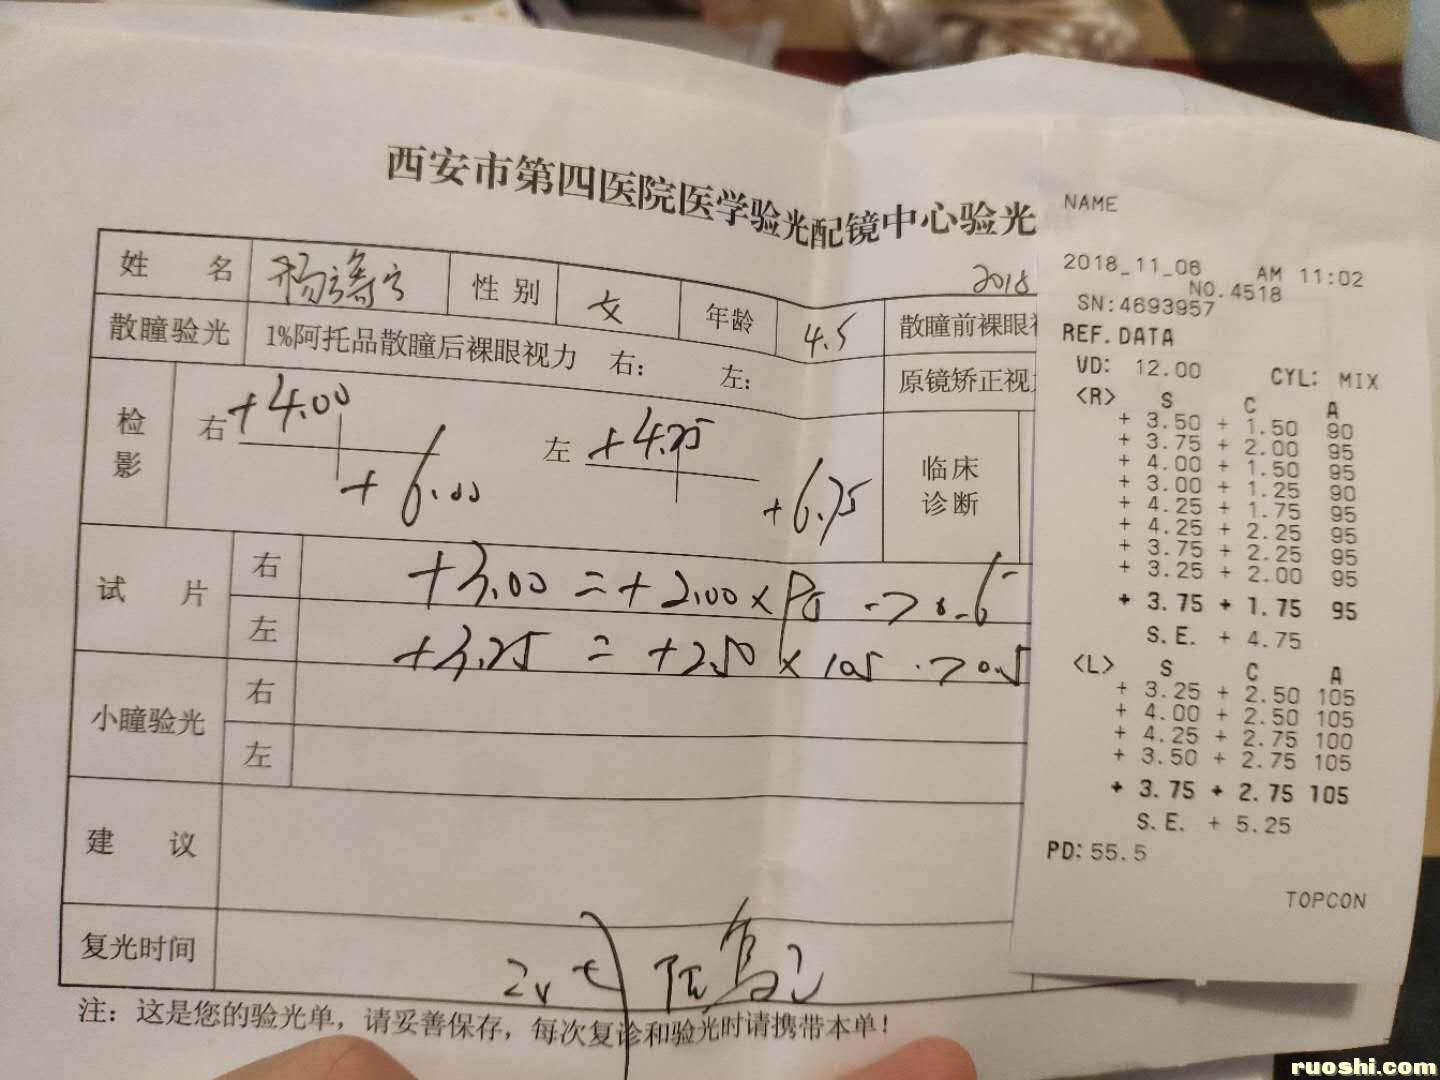 西安市第四医院医学验光配镜中心验光
2018
姓 名 性别 女 年龄 4.5 散瞳前裸眼视
散瞳验光 1%阿托品散瞳后裸眼视力 右: 左: 原镜矫正视力
检影 右 +4.00 +6.00 左 +4.25 +6.75 临床诊断
试 片 右 +3.00 = +2.00 x 90 -> 0.6-
左 +3.25 = +2.50 x 105 -> 0.5
小瞳验光 右
左
建 议
复光时间
注:这是您的验光单,请妥善保存,每次复诊和验光时请携带本单!
NAME
2018_11_06 AM 11:02
NO.4518
SN:4693957
REF.DATA
VD: 12.00 CYL: MIX
<R> S C A
+ 3.50 + 1.50 90
+ 3.75 + 2.00 95
+ 4.00 + 1.50 95
+ 3.00 + 1.25 90
+ 4.25 + 1.75 95
+ 4.25 + 2.25 95
+ 3.75 + 2.25 95
+ 3.25 + 2.00 95
+ 3.75 + 1.75 95
S.E. + 4.75
<L> S C A
+ 3.25 + 2.50 105
+ 4.00 + 2.50 105
+ 4.25 + 2.75 100
+ 3.50 + 2.75 105
+ 3.75 + 2.75 105
S.E. + 5.25
PD:55.5
TOPCON
ruoshi.com